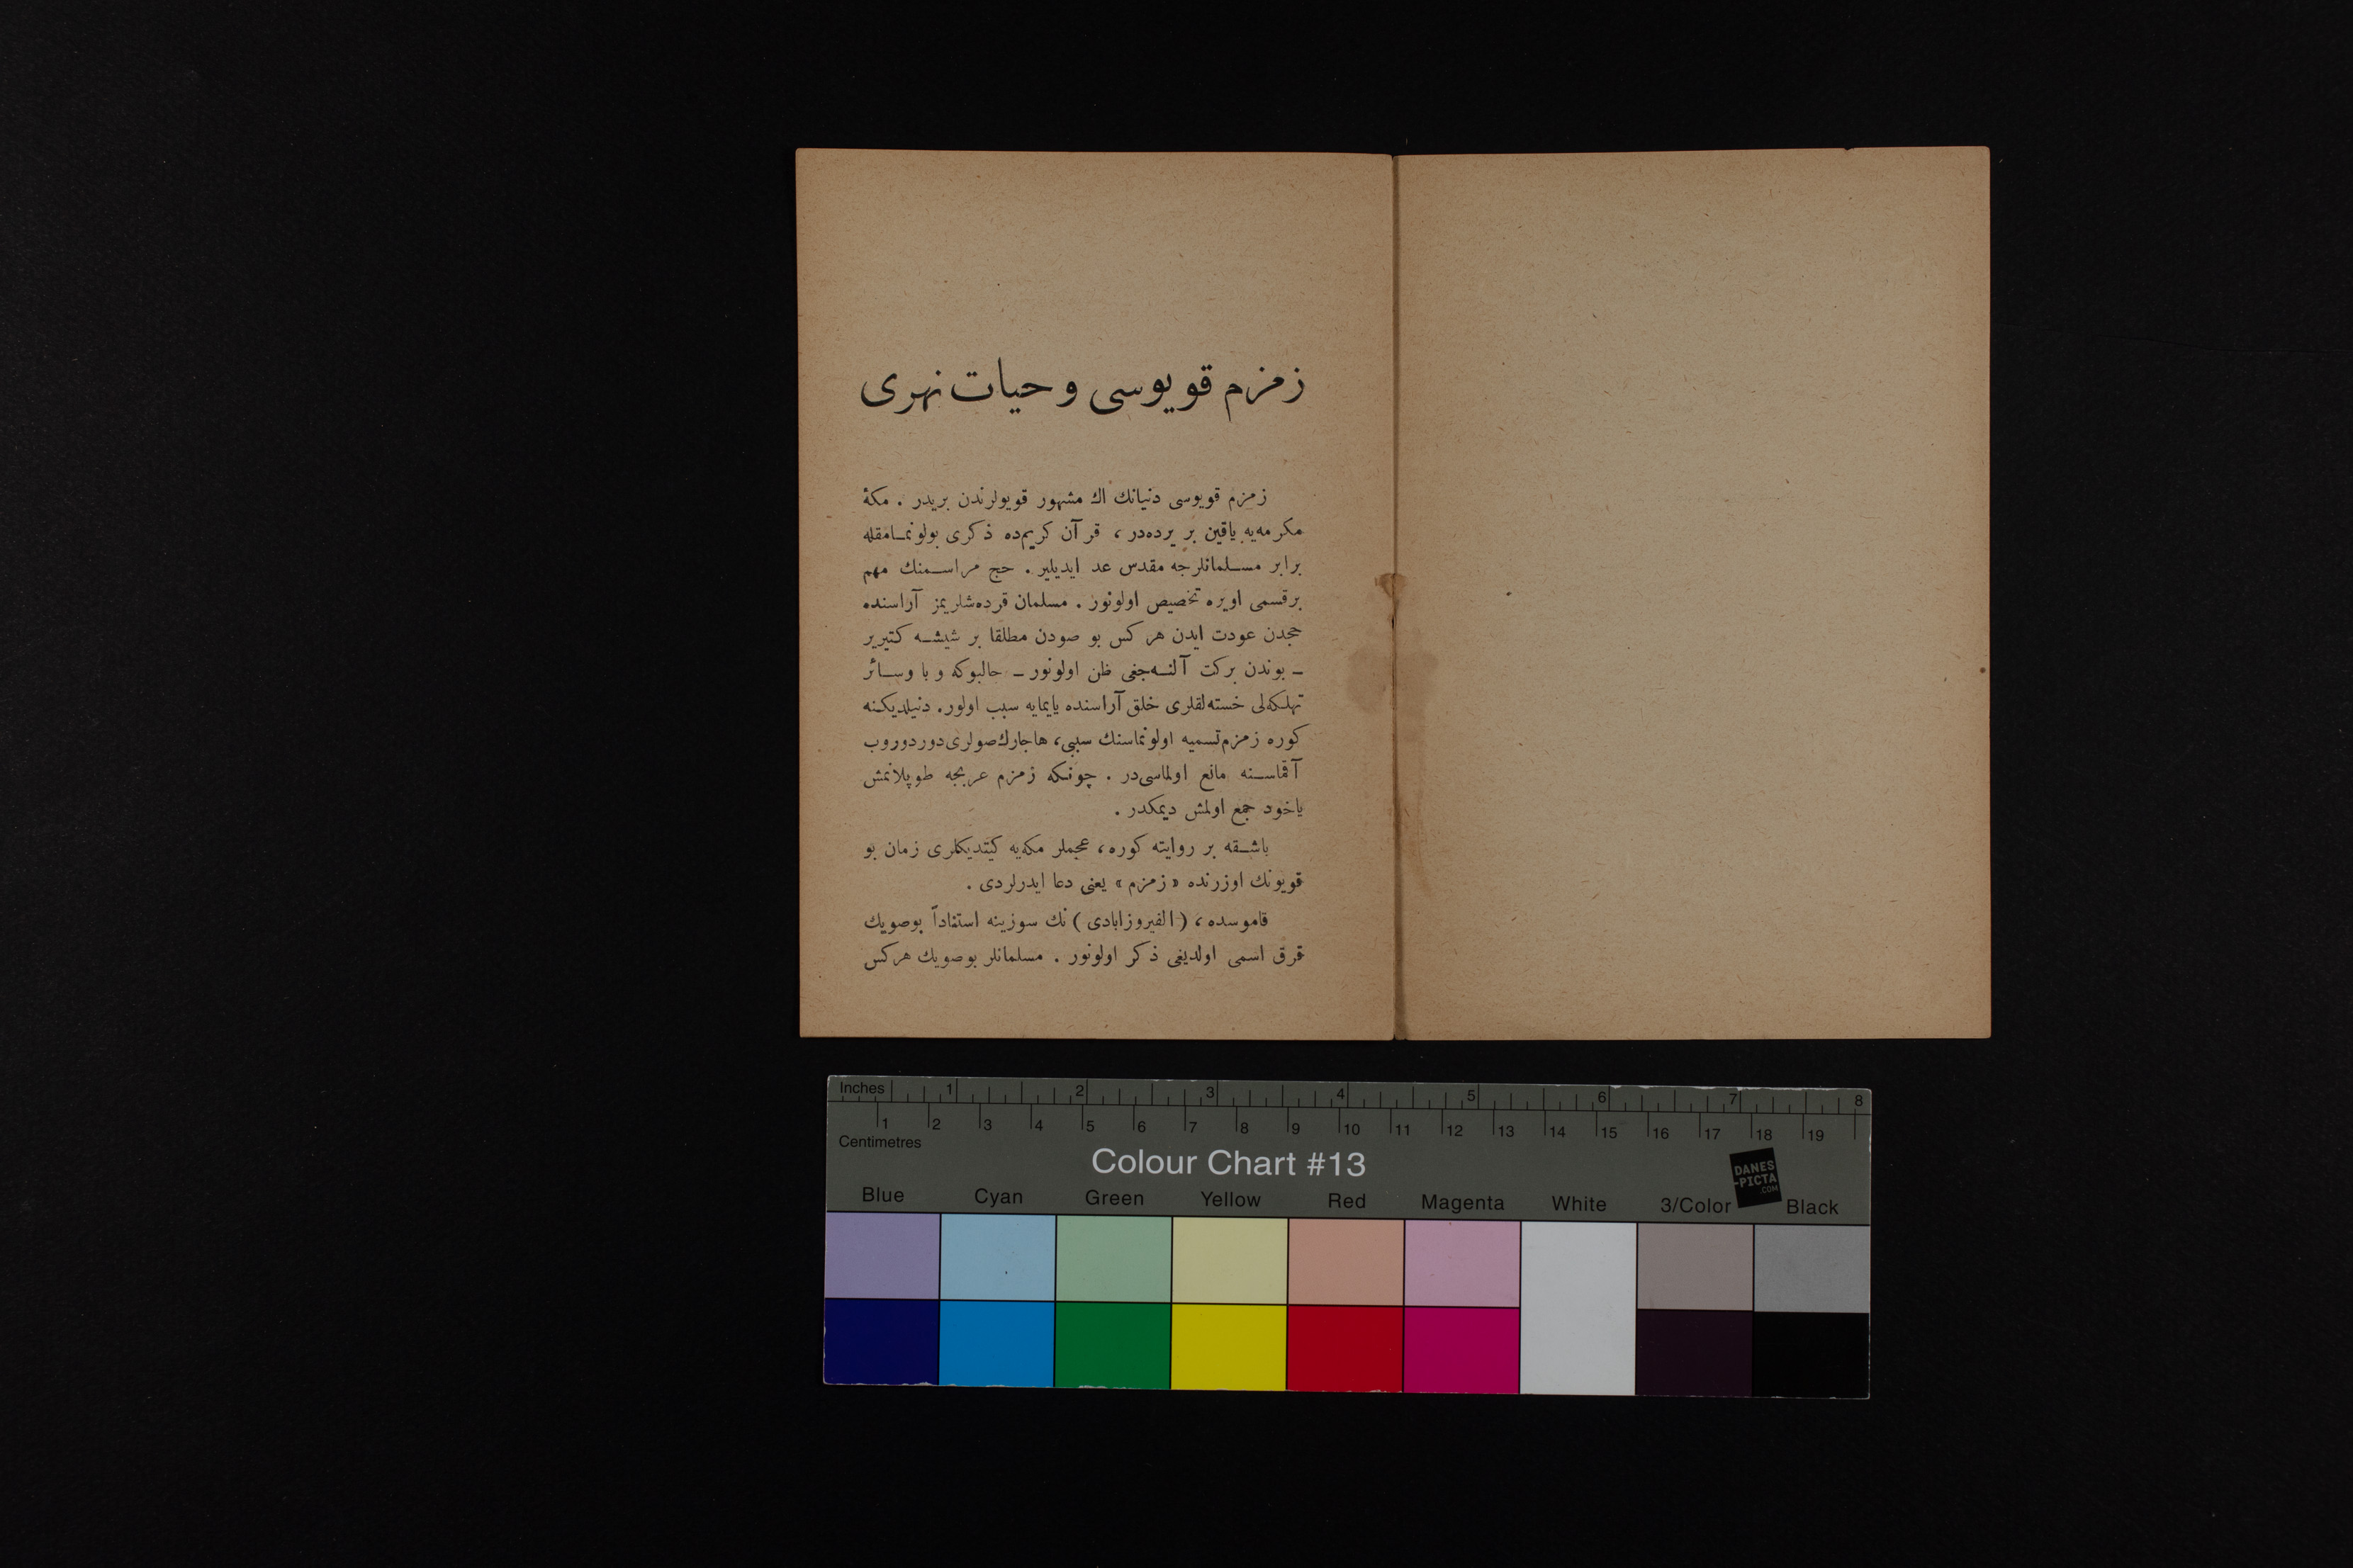 زمزم قويوسى و حيات نهرى
زمزم قويوسى دنيانك اك مشهور قويولرندن بريدر . مكهٔ
مكرمه‌يه ياقين بر يرده‌در ، قرآن كريم‌ده ذكرى بولونمــامقله
برابر مســلمانلرجه مقدس عد ايديلير . حج مراســمنك مهم
برقسمى اويره تخصيص اولونور . مسلمان قرده‌شلريمز آراسنده
حجدن عودت ايدن هر كس بو صودن مطلقا بر شيشــه كتيرير
ــ بوندن بركت آلنــه‌جغى ظن اولونور ــ حالبوكه و با وســائر
تهلكه‌لى خسته‌لقلرى خلق آراسنده يايمايه سبب اولور. دنيلديكنه
كوره زمزم تسميه اولونماسنك سببى، هاجارك صولرى دوردوروب
آقماســنه مانع اولماسى‌در . چونكه زمزم عربجه طوپلانمش
ياخود جمع اولمش ديمكدر .
باشــقه بر روايته كوره، عجملر مكه‌يه كيتديكلرى زمان بو
قويونك اوزرنده « زمزم » يعنى دعا ايدرلردى .
قاموسده، (الفيروزابادى) نك سوزينه استناداً بوصويك
قرق اسمى اولديغى ذكر اولونور . مسلمانلر بوصويك هركس
Inches 1 2 3 4 5 6 7 8
1 2 3 4 5 6 7 8 9 10 11 12 13 14 15 16 17 18 19
Centimetres
Colour Chart #13
DANES
-PICTA
.COM
Blue Cyan Green Yellow Red Magenta White 3/Color Black